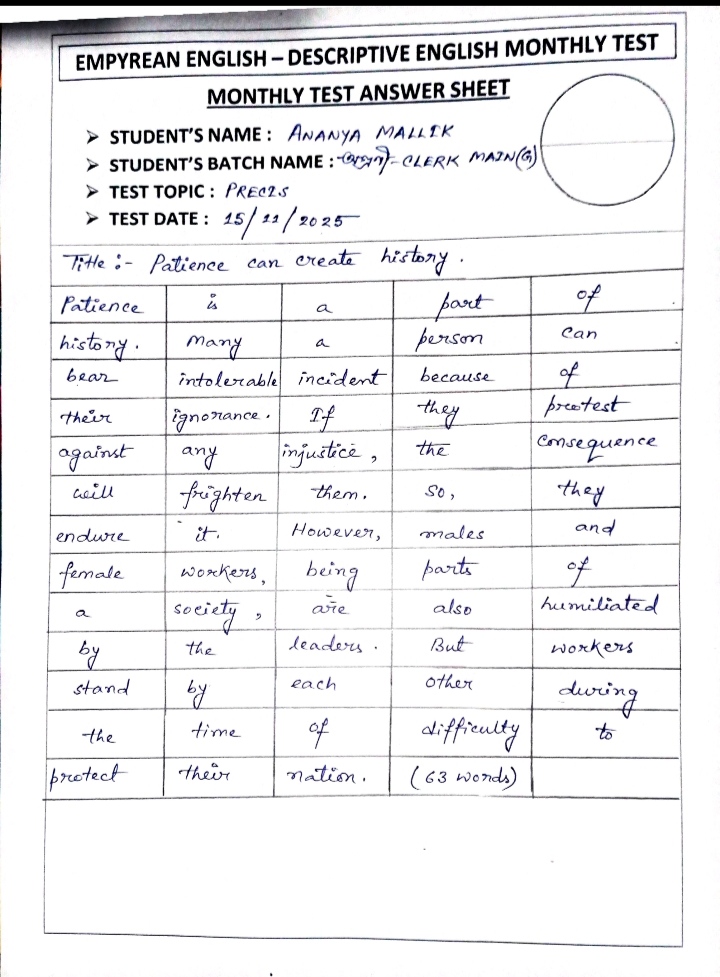 EMPYREAN ENGLISH – DESCRIPTIVE ENGLISH MONTHLY TEST
MONTHLY TEST ANSWER SHEET
➢ STUDENT'S NAME : ANANYA MALLIK
➢ STUDENT'S BATCH NAME : CLERK MAIN(G)
➢ TEST TOPIC : PRECIS
➢ TEST DATE : 15/11/2025
Title :- Patience can create history.
Patience is a part of
history. many a person can
bear intolerable incident because of
their ignorance. If they protest
against any injustice, the consequence
will frighten them. So, they
endure it. However, males and
female workers, being parts of
a society, are also humiliated
by the leaders. But workers
stand by each other during
the time of difficulty to
protect their nation. (63 words)